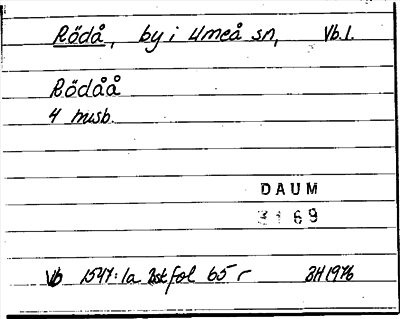 Rödå, by i Umeå sn, Vb. l.
Rödåå
4 husb.
DAUM
3169
Vb 1547: 1a fol 65 r BH 1976